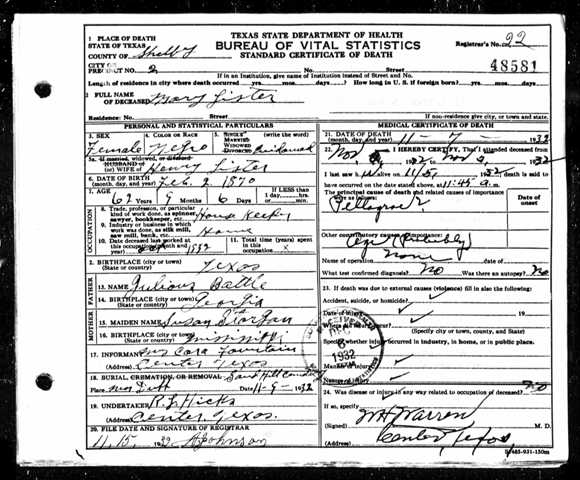 TEXAS STATE DEPARTMENT OF HEALTH
BUREAU OF VITAL STATISTICS
STANDARD CERTIFICATE OF DEATH
Registrar's No. 22
48581
1 PLACE OF DEATH
STATE OF TEXAS
COUNTY OF Shelby
CITY OR
PRECINCT NO. 2 No. Street
If in an Institution, give name of Institution instead of Street and No.
Length of residence in city where death occurred yrs. mos. days. How long in U. S. if foreign born? yrs. mos. days
2 FULL NAME
OF DECEASED Mary Lister
Residence: No. Street
If non-residence give city, or town and state.
PERSONAL AND STATISTICAL PARTICULARS
3. SEX 4. COLOR OR RACE 5. SINGLE MARRIED WIDOWED DIVORCED (write the word)
Female Negro
5a. If married, widowed, or divorced
HUSBAND OF
(or) WIFE OF Henry Lister
6. DATE OF BIRTH
(month, day, and year) Feb. 2 1870
7. AGE 62 Years 9 Months 6 Days If LESS than 1 day, hrs. min.
OCCUPATION
8. Trade, profession, or particular kind of work done, as spinner, sawyer, bookkeeper, etc. House Keeper
9. Industry or business in which work was done, as silk mill, saw mill, bank, etc. Home
10. Date deceased last worked at this occupation (month and year) 1932
11. Total time (years) spent in this occupation x
12. BIRTHPLACE (city or town)
(State or country) Texas
FATHER
13. NAME Julious Battle
14. BIRTHPLACE (city or town)
(State or country) Georgia
MOTHER
15. MAIDEN NAME Susan
16. BIRTHPLACE (city or town)
(State or country)
17. INFORMANT Mrs Cora Fountain
(Address) Center Texas
18. BURIAL, CREMATION, OR REMOVAL Sand Hill
Place Date 11-9-1932
19. UNDERTAKER R. L. Hicks
(Address) Center Texas.
20. FILE DATE AND SIGNATURE OF REGISTRAR
11.15. 1932 Johnson
MEDICAL CERTIFICATE OF DEATH
21. DATE OF DEATH
(month, day, and year) 11 - 7 - 1932
22. I HEREBY CERTIFY, That I attended deceased from
Nov 1932 to Nov 1932
I last saw h alive on 11/5 1932 death is said
to have occurred on the date stated above at 11:45 a. m.
The principal cause of death and related causes of importance were as follows: Date of onset
Other contributory causes of importance:
Age (Probably)
Name of operation None Date of
What test confirmed diagnosis? No Was there an autopsy? No
23. If death was due to external causes (violence) fill in also the following:
Accident, suicide, or homicide?
Date of injury 19
Where did injury occur?
(Specify city or town, county, and State)
Specify whether injury occurred in industry, in home, or in public place.
Manner of injury
Nature of injury
RECEIVED
1932
24. Was disease or injury in any way related to occupation of deceased? No
If so, specify
(Signed) W H Warren M. D.
(Address) Center, Texas,